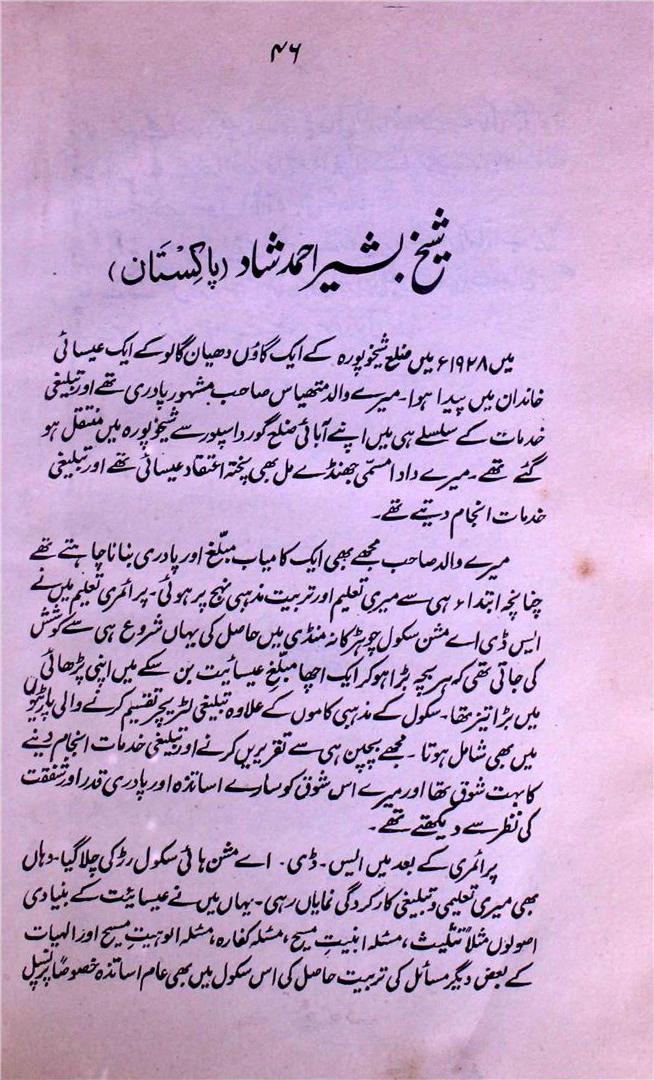 ۴۶
شیخ بشیر احمد شاد (پاکستان)
میں ۱۹۲۸ء میں ضلع شیخوپورہ کے ایک گاؤں دھیان گالو کے ایک عیسائی
خاندان میں پیدا ہوا۔ میرے والد متھیاس صاحب مشہور پادری تھے اور تبلیغی
خدمات کے سلسلے ہی میں اپنے آبائی ضلع گورداسپور سے شیخوپورہ میں منتقل ہو
گئے تھے۔ میرے دادا مسمی جھنڈے مل بھی پختہ اعتقاد عیسائی تھے اور تبلیغی
خدمات انجام دیتے تھے۔
میرے والد صاحب مجھے بھی ایک کامیاب مبلّغ اور پادری بنانا چاہتے تھے
چنانچہ ابتداء ہی سے میری تعلیم اور تربیت مذہبی نہج پر ہوئی۔ پرائمری تعلیم میں نے
ایس ڈی اے مشن سکول چوہڑکانہ منڈی میں حاصل کی یہاں شروع ہی سے کوشش
کی جاتی تھی کہ ہر بچہ بڑا ہو کر ایک اچھا مبلّغِ عیسائیت بن سکے میں اپنی پڑھائی
میں بڑا تیز تھا۔ سکول کے مذہبی کاموں کے علاوہ تبلیغی لٹریچر تقسیم کرنے والی پارٹیوں
میں بھی شامل ہوتا۔ مجھے بچپن ہی سے تقریریں کرنے اور تبلیغی خدمات انجام دینے
کا بہت شوق تھا اور میرے اس شوق کو سارے اساتذہ اور پادری قدر اور شفقت
کی نظر سے دیکھتے تھے۔
پرائمری کے بعد میں ایس۔ ڈی۔ اے مشن ہائی سکول رڑکی چلا گیا۔ وہاں
بھی میری تعلیمی و تبلیغی کارکردگی نمایاں رہی۔ یہاں میں نے عیسائیت کے بنیادی
اصولوں مثلاً تثلیث، مسئلہ ابنیتِ مسیح، مسئلہ کفارہ، مسئلہ الوہیتِ مسیح اور الہیات
کے بعض دیگر مسائل کی تربیت حاصل کی اس سکول میں بھی عام اساتذہ خصوصاً پرنسپل